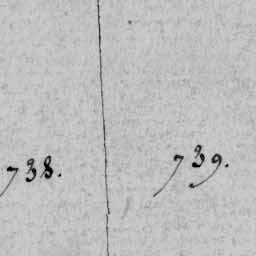 738.
739.